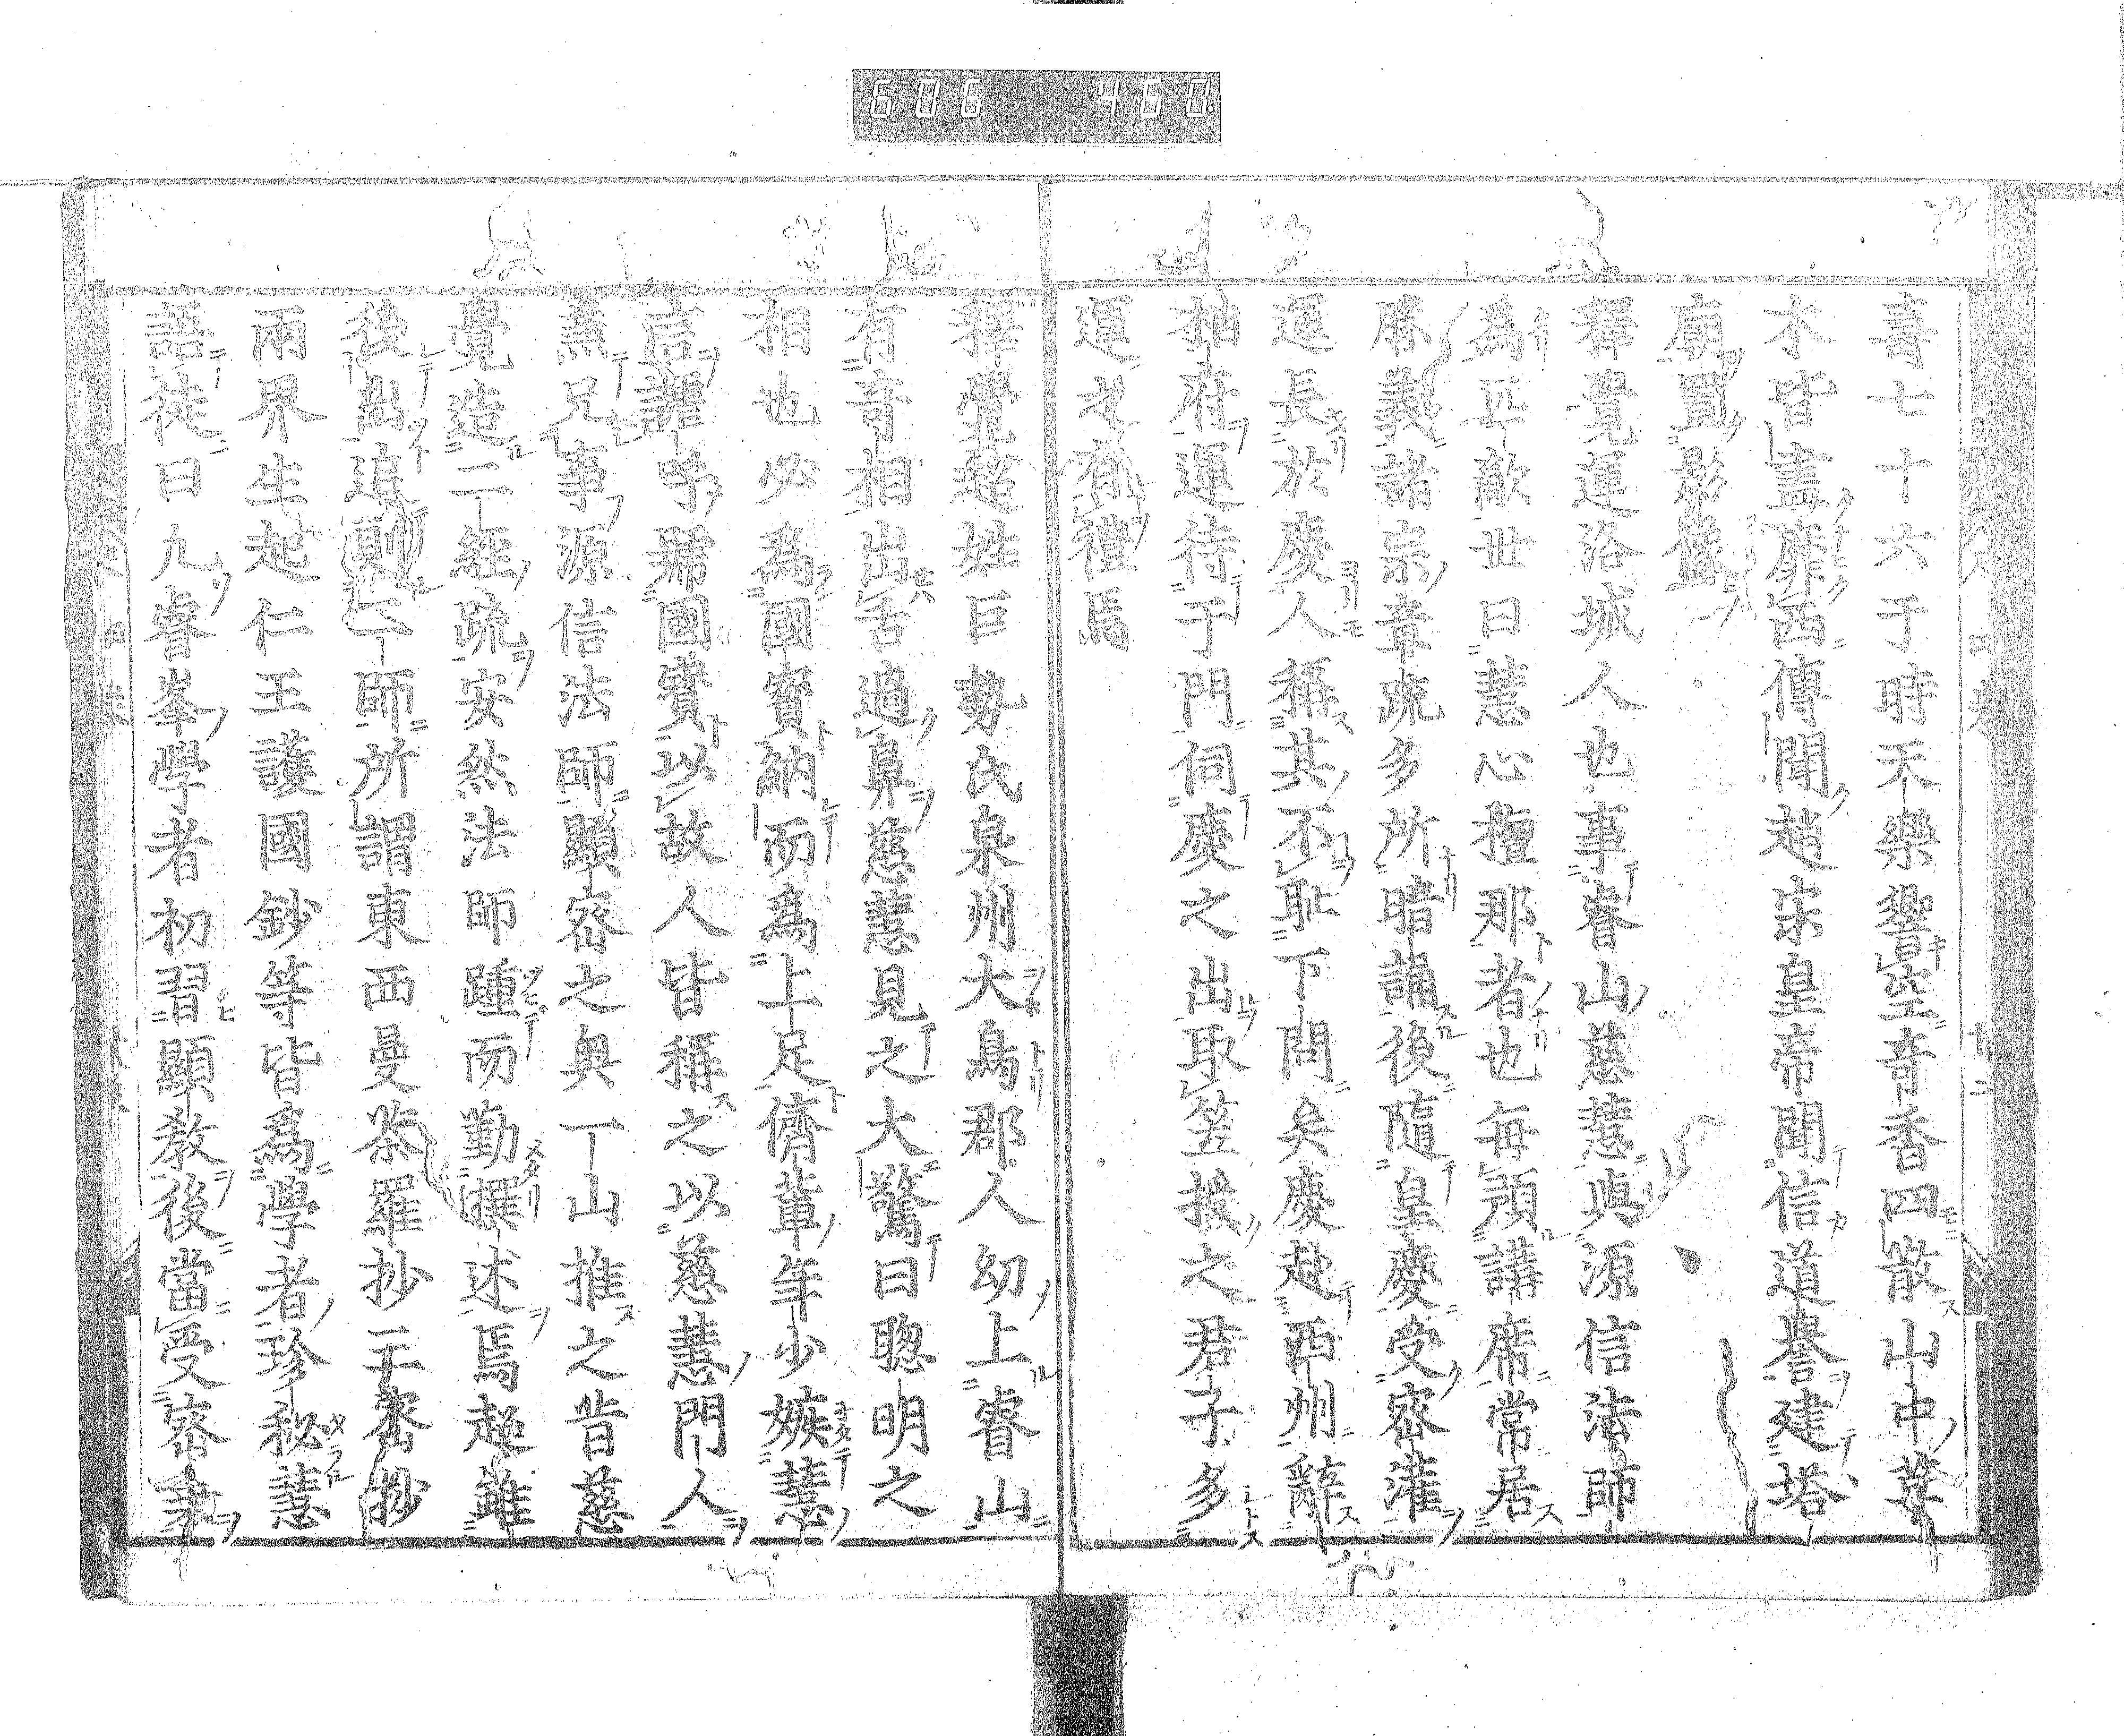 686 460
壽七十六于時天樂響空奇香四散山中草
木皆盡靡西傳聞趙宋皇帝聞信道譽建塔
廟置影像
釋覺運洛城人也事睿山慈慧與源信法師
為匹敵世曰慧心檀那者也每預講席常居
勝義諸宗章疏多所暗誦後隨皇慶受密灌
運長於慶人稱其不耻下問矣慶赴西州辭
柏府運待于門伺慶之出取笠授之君子多
運才有禮焉
釋覺超姓巨勢氏泉州大鳥郡人幼上睿山
有奇相出舌過鼻慈慧見之大驚曰聰明之
相也必為國寶納而為上足儕輩年少嫉慧
言讙呼號國寶以故人皆稱之以慈慧門人
兼兄事源信法師顯密之奧一山推之昔慈
覺造二經疏安然法師踵而勤撰述焉超雖
後出追則二師所謂東西曼荼羅抄三密抄
兩界生起仁王護國鈔等皆為學者珍秘慧
語徒曰九睿峯學者初習顯教後當受密業